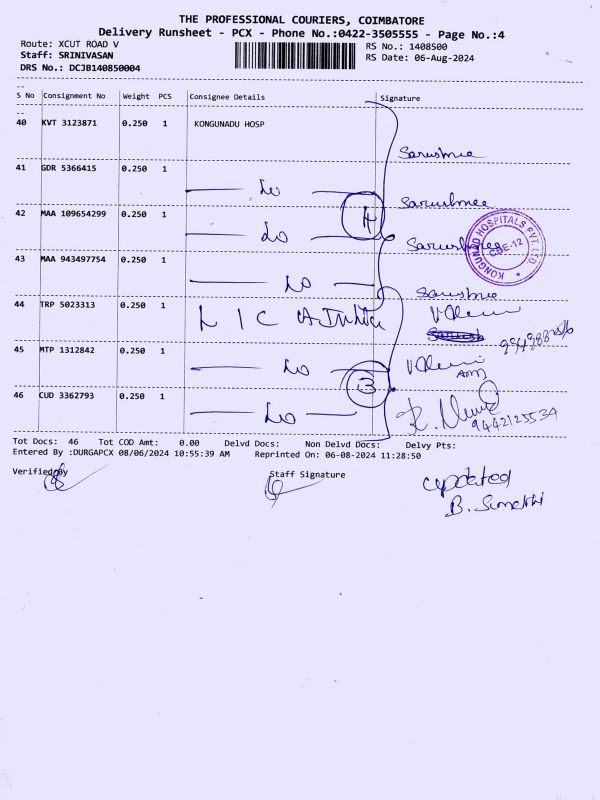 THE PROFESSIONAL COURIERS, COIMBATORE
Delivery Runsheet - PCX - Phone No.:0422-3505555 - Page No.:4
Route: XCUT ROAD V RS No.: 1408500
Staff: SRINIVASAN RS Date: 06-Aug-2024
DRS No.: DCJB140850004
S No Consignment No Weight PCS Consignee Details Signature
40 KVT 3123871 0.250 1 KONGUNADU HOSP
41 GDR 5366415 0.250 1
42 MAA 109654299 0.250 1
4
KONGUNAD HOSPITALS PVT. LTD.
CBE-12
43 MAA 943497754 0.250 1
44 TRP 5023313 0.250 1 L I C
45 MTP 1312842 0.250 1
3
46 CUD 3362793 0.250 1
9442125534
Tot Docs: 46 Tot COD Amt: 0.00 Delvd Docs: Non Delvd Docs: Delvy Pts:
Entered By :DURGAPCX 08/06/2024 10:55:39 AM Reprinted On: 06-08-2024 11:28:50
Verified By Staff Signature
updated
B. Sumathi